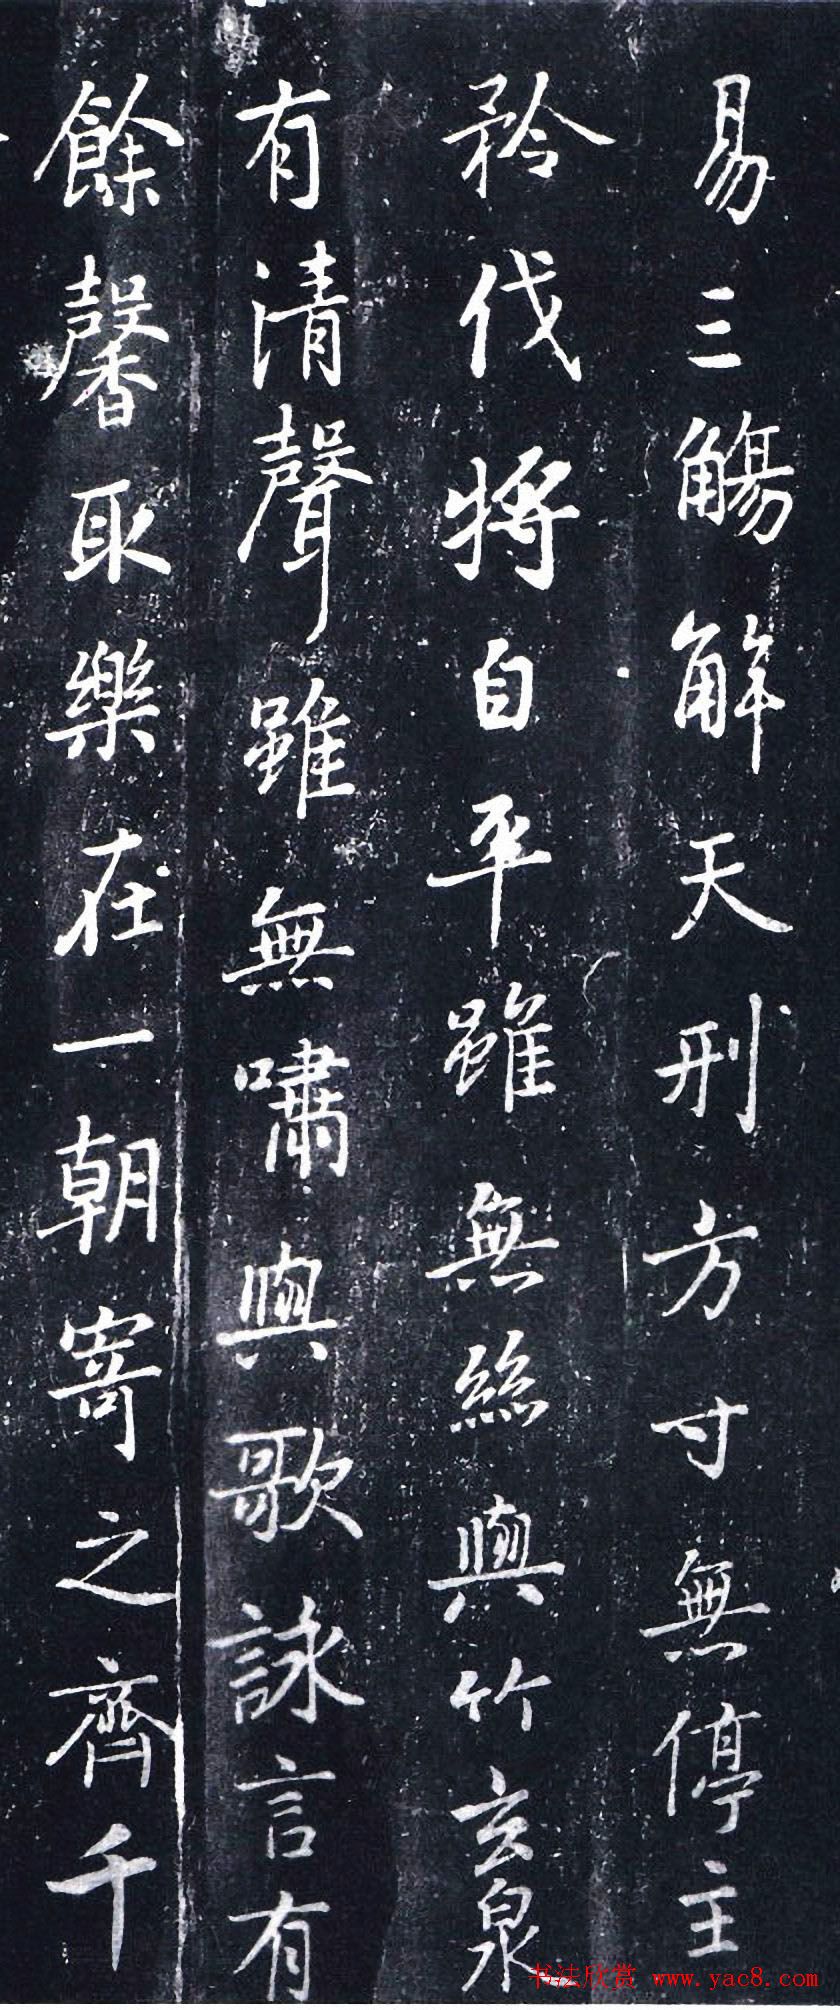 易三觴解天刑方寸無停主
矜伐將自平雖無絲與竹玄泉
有清聲雖無嘯與歌詠言有
餘馨取樂在一朝寄之齊千
书法欣赏 www.yac8.com